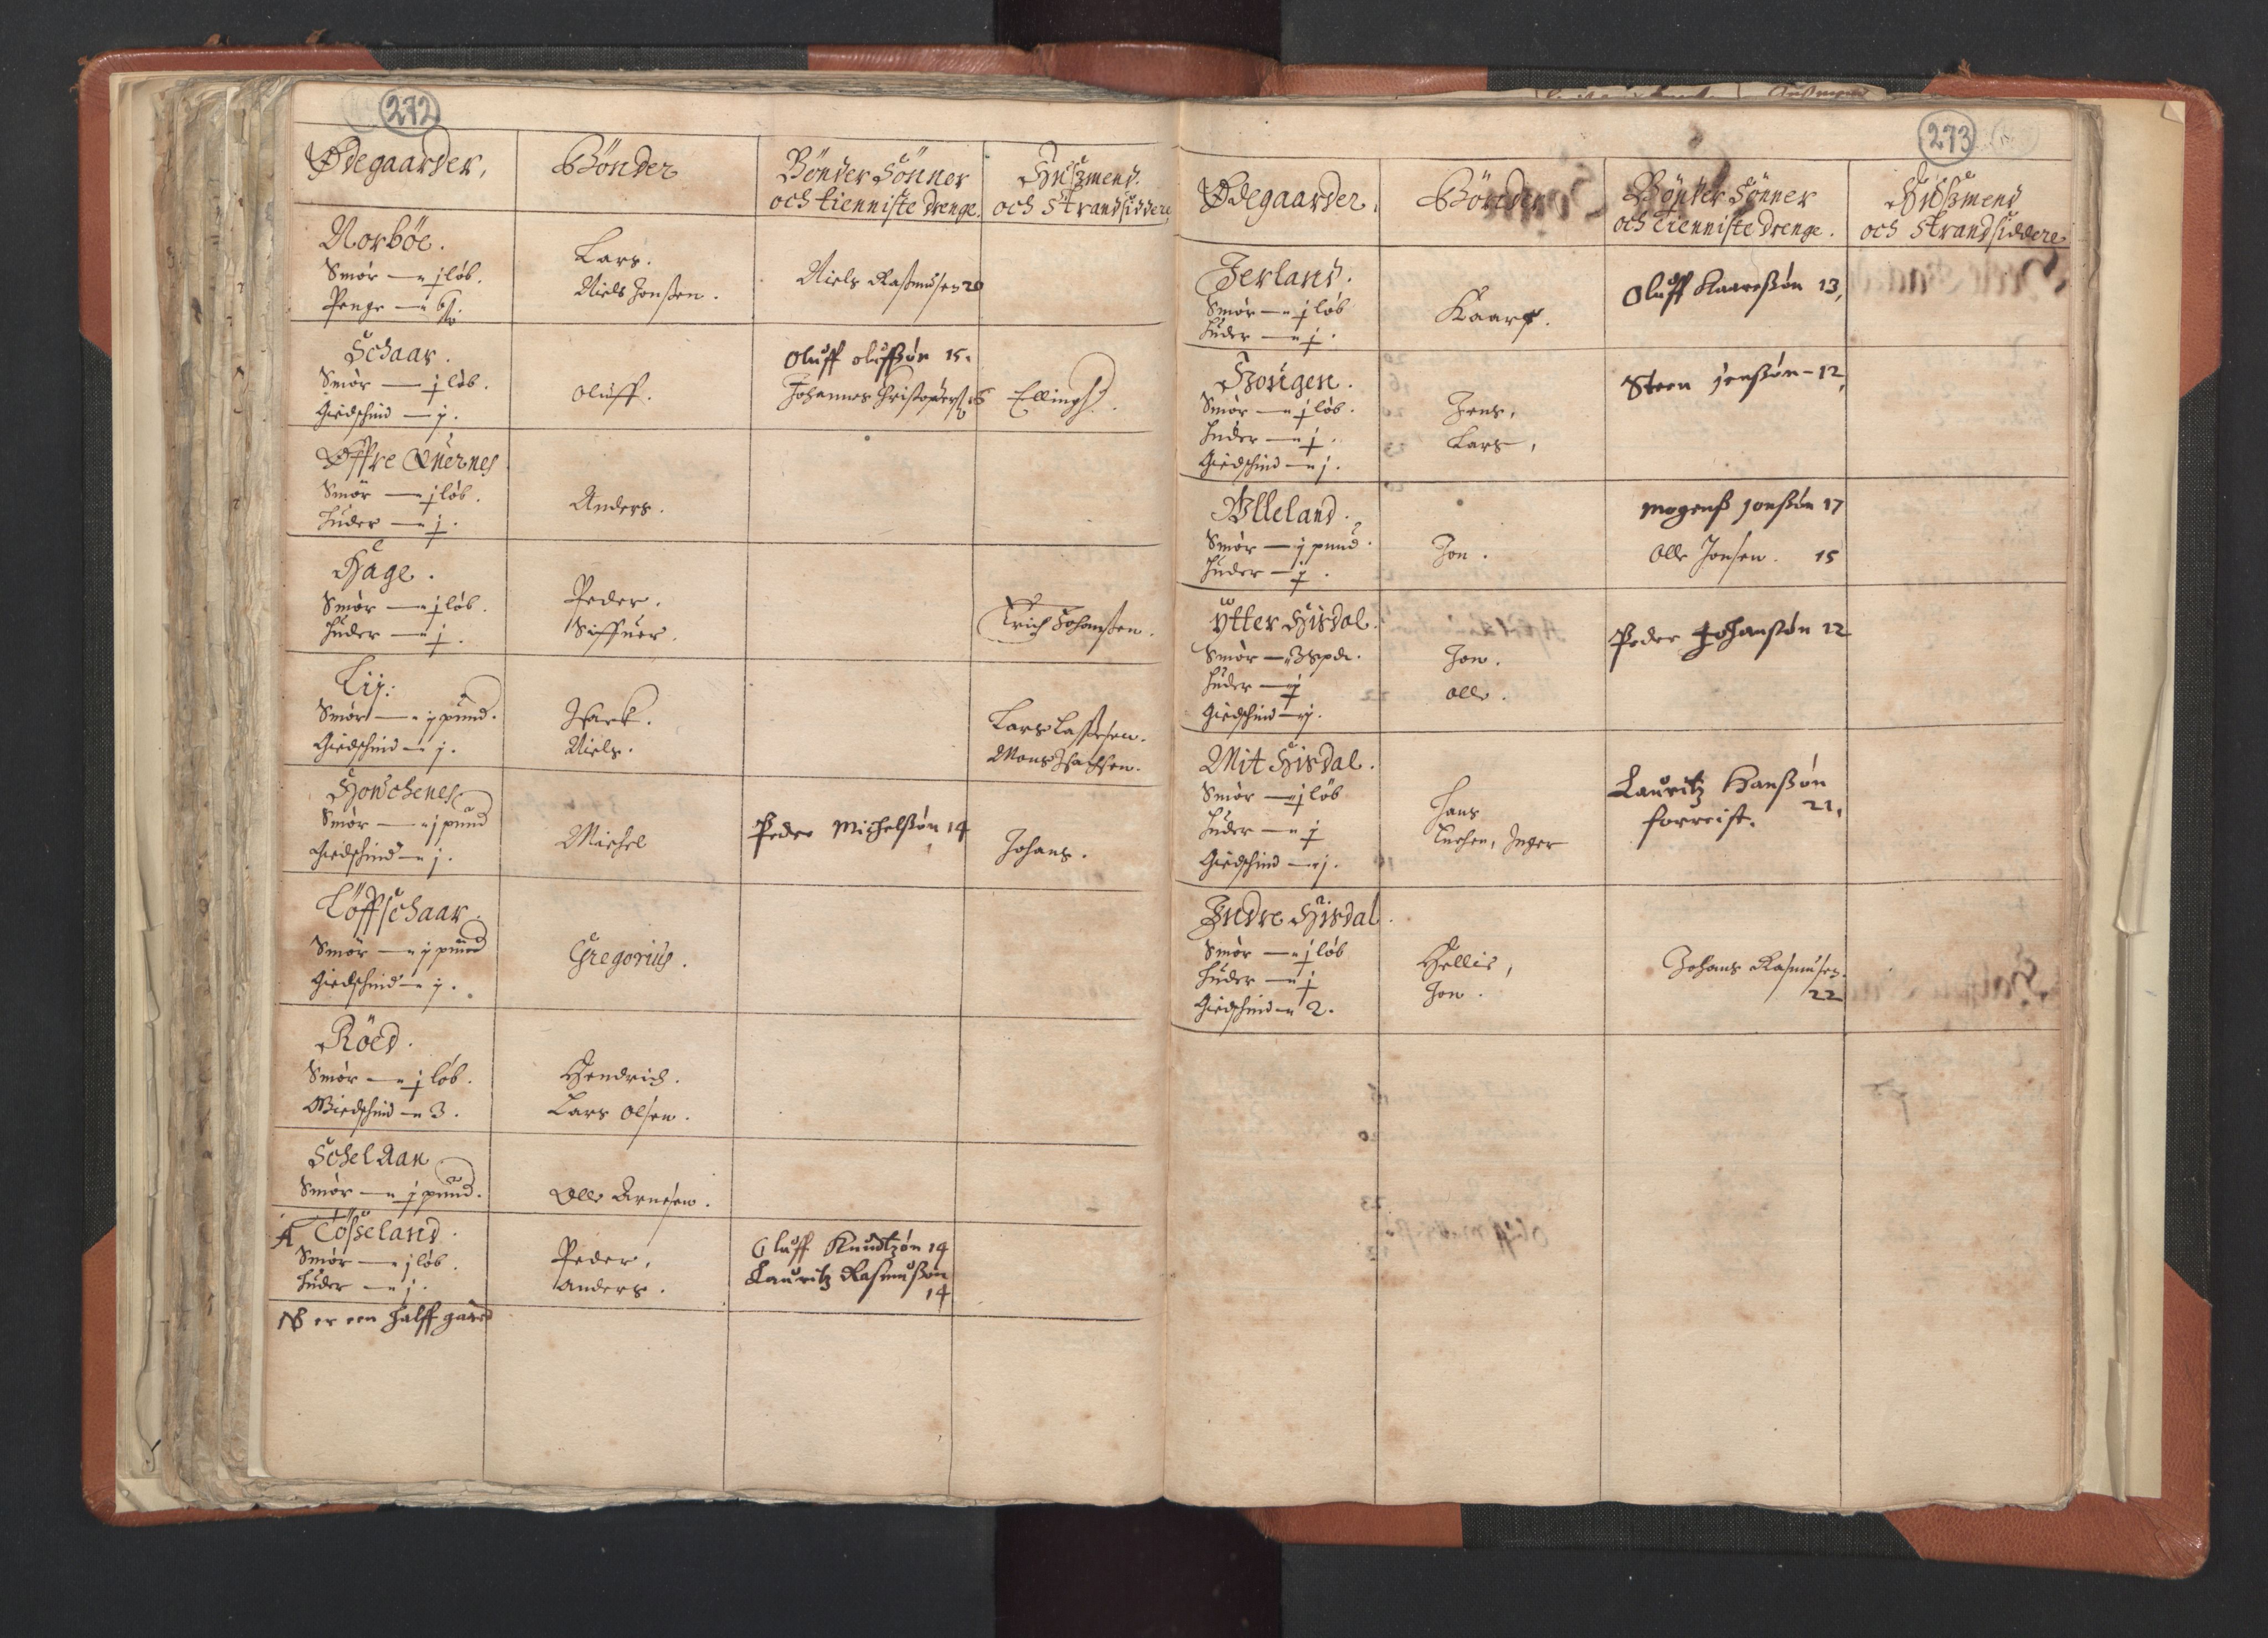 272
Ødegaarder,
Bönder
Bönder Sönner
och tienniste drenge.
Huszmend.
och Strandsiddere
Norböe.
Smör — j löb.
Penge — 6
Lars.
Niels Jonßen.
Niels Rasmusen 20
Schaar.
Smör — j löb.
Giedschind — j.
Oluff.
Oluff Olufßön 15.
Ellingh.
Øffre Quernes
Smör — j löb.
Huder — j.
Anders.
Hage.
Smör — j löb.
Huder — j.
Peder.
Siffuer.
Erich Johanßen.
Lij:
Smör — j pund.
Giedschind — j.
Isack.
Niels.
Lars Lassesen.
Mons Isachsen.
Howchenes
Smör — j pund
Giedschind — j.
Michel
Peder Michelßön 14
Johans.
Löffschaar.
Smör — j pund
Giedschind — j.
Gregorius.
Röed.
Smör — j löb.
Giedschind — 3.
Hendrich.
Lars Olsen.
Schelaan
Smör — j pund.
Olle Arnesen.
A Tösseland.
Smör — j löb.
Huder — j.
Peder,
Anders.
Oluff Knudtzön 14
Lauritz Rasmusßön
14
NB er een halff gaard
273
Ødegaarder.
Bönder
Bönder Sönner
och tienniste drenge.
Huszmend
och Strandsiddere
Jerland.
Smör — j löb
Huder — j.
Kaare.
Oluff Kaareßön 13,
Hougen.
Smör — j löb.
Huder — j.
Giedschind — j.
Jens,
Lars,
Steen Jenßön - 12,
Ulleland.
Smör — j pund.
Huder — j.
Jon.
Mogenß Jonßön 17
Olle Jonsen. 15
Ytter Hisdal.
Smör — 3 spdr.
Huder — j
Giedschind — j.
Jon.
Olle.
Peder Johanßön 12
Mit Hisdal.
Smör — j löb
Huder — j
Giedschind — j.
Hans
Enchen, Inger
Lauritz Hanßön
forreist. 21,
Indre Hisdal.
Smör — j löb
Huder — j
Giedschind — 2.
Hellie,
Jon.
Johans Rasmusen.
22